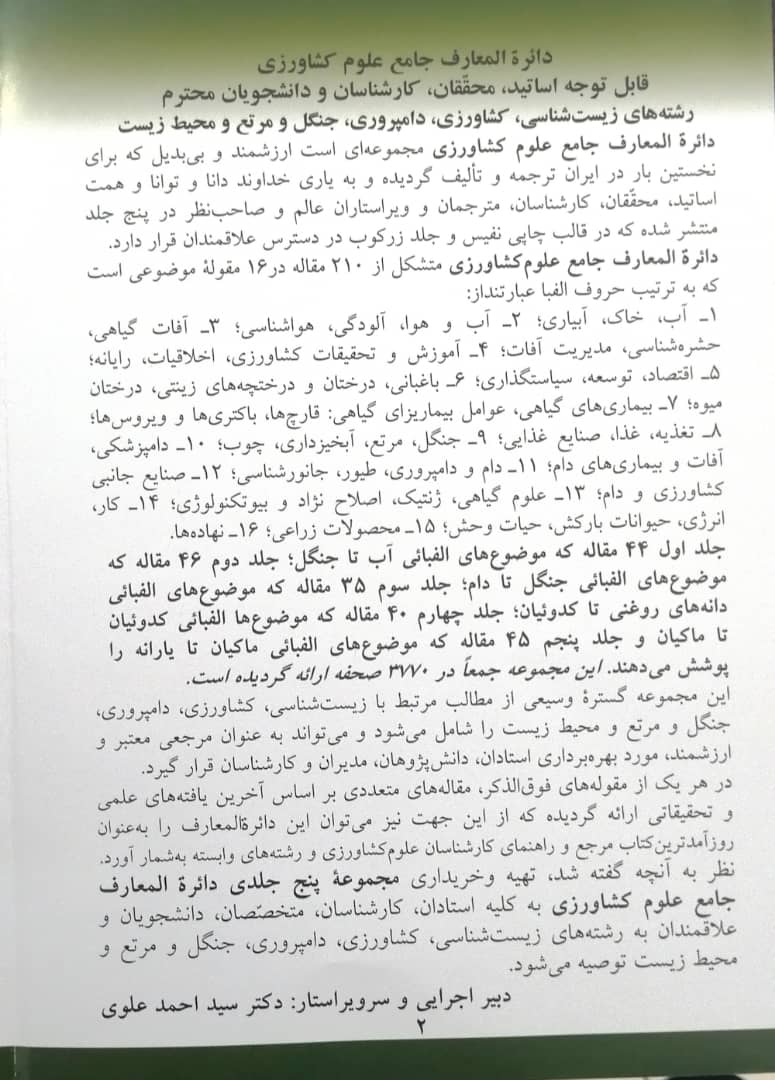 دائرة المعارف جامع علوم کشاورزی
قابل توجه اساتید، محقّقان، کارشناسان و دانشجویان محترم
رشته‌های زیست‌شناسی، کشاورزی، دامپروری، جنگل و مرتع و محیط زیست
دائرة المعارف جامع علوم کشاورزی مجموعه‌ای است ارزشمند و بی‌بدیل که برای
نخستین بار در ایران ترجمه و تألیف گردیده و به یاری خداوند دانا و توانا و همت
اساتید، محقّقان، کارشناسان، مترجمان و ویراستاران عالم و صاحب‌نظر در پنج جلد
منتشر شده که در قالب چاپی نفیس و جلد زرکوب در دسترس علاقمندان قرار دارد.
دائرة المعارف جامع علوم‌کشاورزی متشکل از ۲۱۰ مقاله در۱۶ مقولهٔ موضوعی است
که به ترتیب حروف الفبا عبارتنداز:
۱ـ آب، خاک، آبیاری؛ ۲ـ آب و هوا، آلودگی، هواشناسی؛ ۳ـ آفات گیاهی،
حشره‌شناسی، مدیریت آفات؛ ۴ـ آموزش و تحقیقات کشاورزی، اخلاقیات، رایانه؛
۵ـ اقتصاد، توسعه، سیاستگذاری؛ ۶ـ باغبانی، درختان و درختچه‌های زینتی، درختان
میوه؛ ۷ـ بیماری‌های گیاهی، عوامل بیماریزای گیاهی: قارچ‌ها، باکتری‌ها و ویروس‌ها؛
۸ـ تغذیه، غذا، صنایع غذایی؛ ۹ـ جنگل، مرتع، آبخیزداری، چوب؛ ۱۰ـ دامپزشکی،
آفات و بیماری‌های دام؛ ۱۱ـ دام و دامپروری، طیور، جانورشناسی؛ ۱۲ـ صنایع جانبی
کشاورزی و دام؛ ۱۳ـ علوم گیاهی، ژنتیک، اصلاح نژاد و بیوتکنولوژی؛ ۱۴ـ کار،
انرژی، حیوانات بارکش، حیات وحش؛ ۱۵ـ محصولات زراعی؛ ۱۶ـ نهاده‌ها.
جلد اول ۴۴ مقاله که موضوع‌های الفبائی آب تا جنگل؛ جلد دوم ۴۶ مقاله که
موضوع‌های الفبائی جنگل تا دام؛ جلد سوم ۳۵ مقاله که موضوع‌های الفبائی
دانه‌های روغنی تا کدوئیان؛ جلد چهارم ۴۰ مقاله که موضوع‌ها الفبائی کدوئیان
تا ماکیان و جلد پنجم ۴۵ مقاله که موضوع‌های الفبائی ماکیان تا یارانه را
پوشش می‌دهند. این مجموعه جمعاً در ۳۷۷۰ صحفه ارائه گردیده است.
این مجموعه گسترهٔ وسیعی از مطالب مرتبط با زیست‌شناسی، کشاورزی، دامپروری،
جنگل و مرتع و محیط زیست را شامل می‌شود و می‌تواند به عنوان مرجعی معتبر و
ارزشمند، مورد بهره‌برداری استادان، دانش‌پژوهان، مدیران و کارشناسان قرار گیرد.
در هر یک از مقوله‌های فوق‌الذکر، مقاله‌های متعددی بر اساس آخرین یافته‌های علمی
و تحقیقاتی ارائه گردیده که از این جهت نیز می‌توان این دائرةالمعارف را به‌عنوان
روزآمدترین‌کتاب مرجع و راهنمای کارشناسان علوم‌کشاورزی و رشته‌های وابسته به‌شمار آورد.
نظر به آنچه گفته شد، تهیه وخریداری مجموعهٔ پنج جلدی دائرة المعارف
جامع علوم کشاورزی به کلیه استادان، کارشناسان، متخصّصان، دانشجویان و
علاقمندان به رشته‌های زیست‌شناسی، کشاورزی، دامپروری، جنگل و مرتع و
محیط زیست توصیه می‌شود.
دبیر اجرایی و سرویراستار: دکتر سید احمد علوی
۲